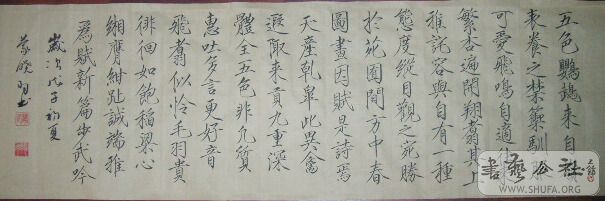 五色鸚鵡來自嶺
表養之禁籞馴服
可愛飛鳴自適往
繁杏遍開翔翥其上
雅詫容與自有一種
態度縱目觀之宛勝
於花圃間方中春
圖畫因賦是詩焉
天產乾皋此異禽
遐陬來貢九重深
體全五色非凡質
惠吐多言更好音
飛翥似怜毛羽貴
徘徊如飽稻粱心
緗膺紺趾誠端雅
為賦新篇步武吟
歲次戊子初夏
書藝公社
WWW.SHUFA.ORG